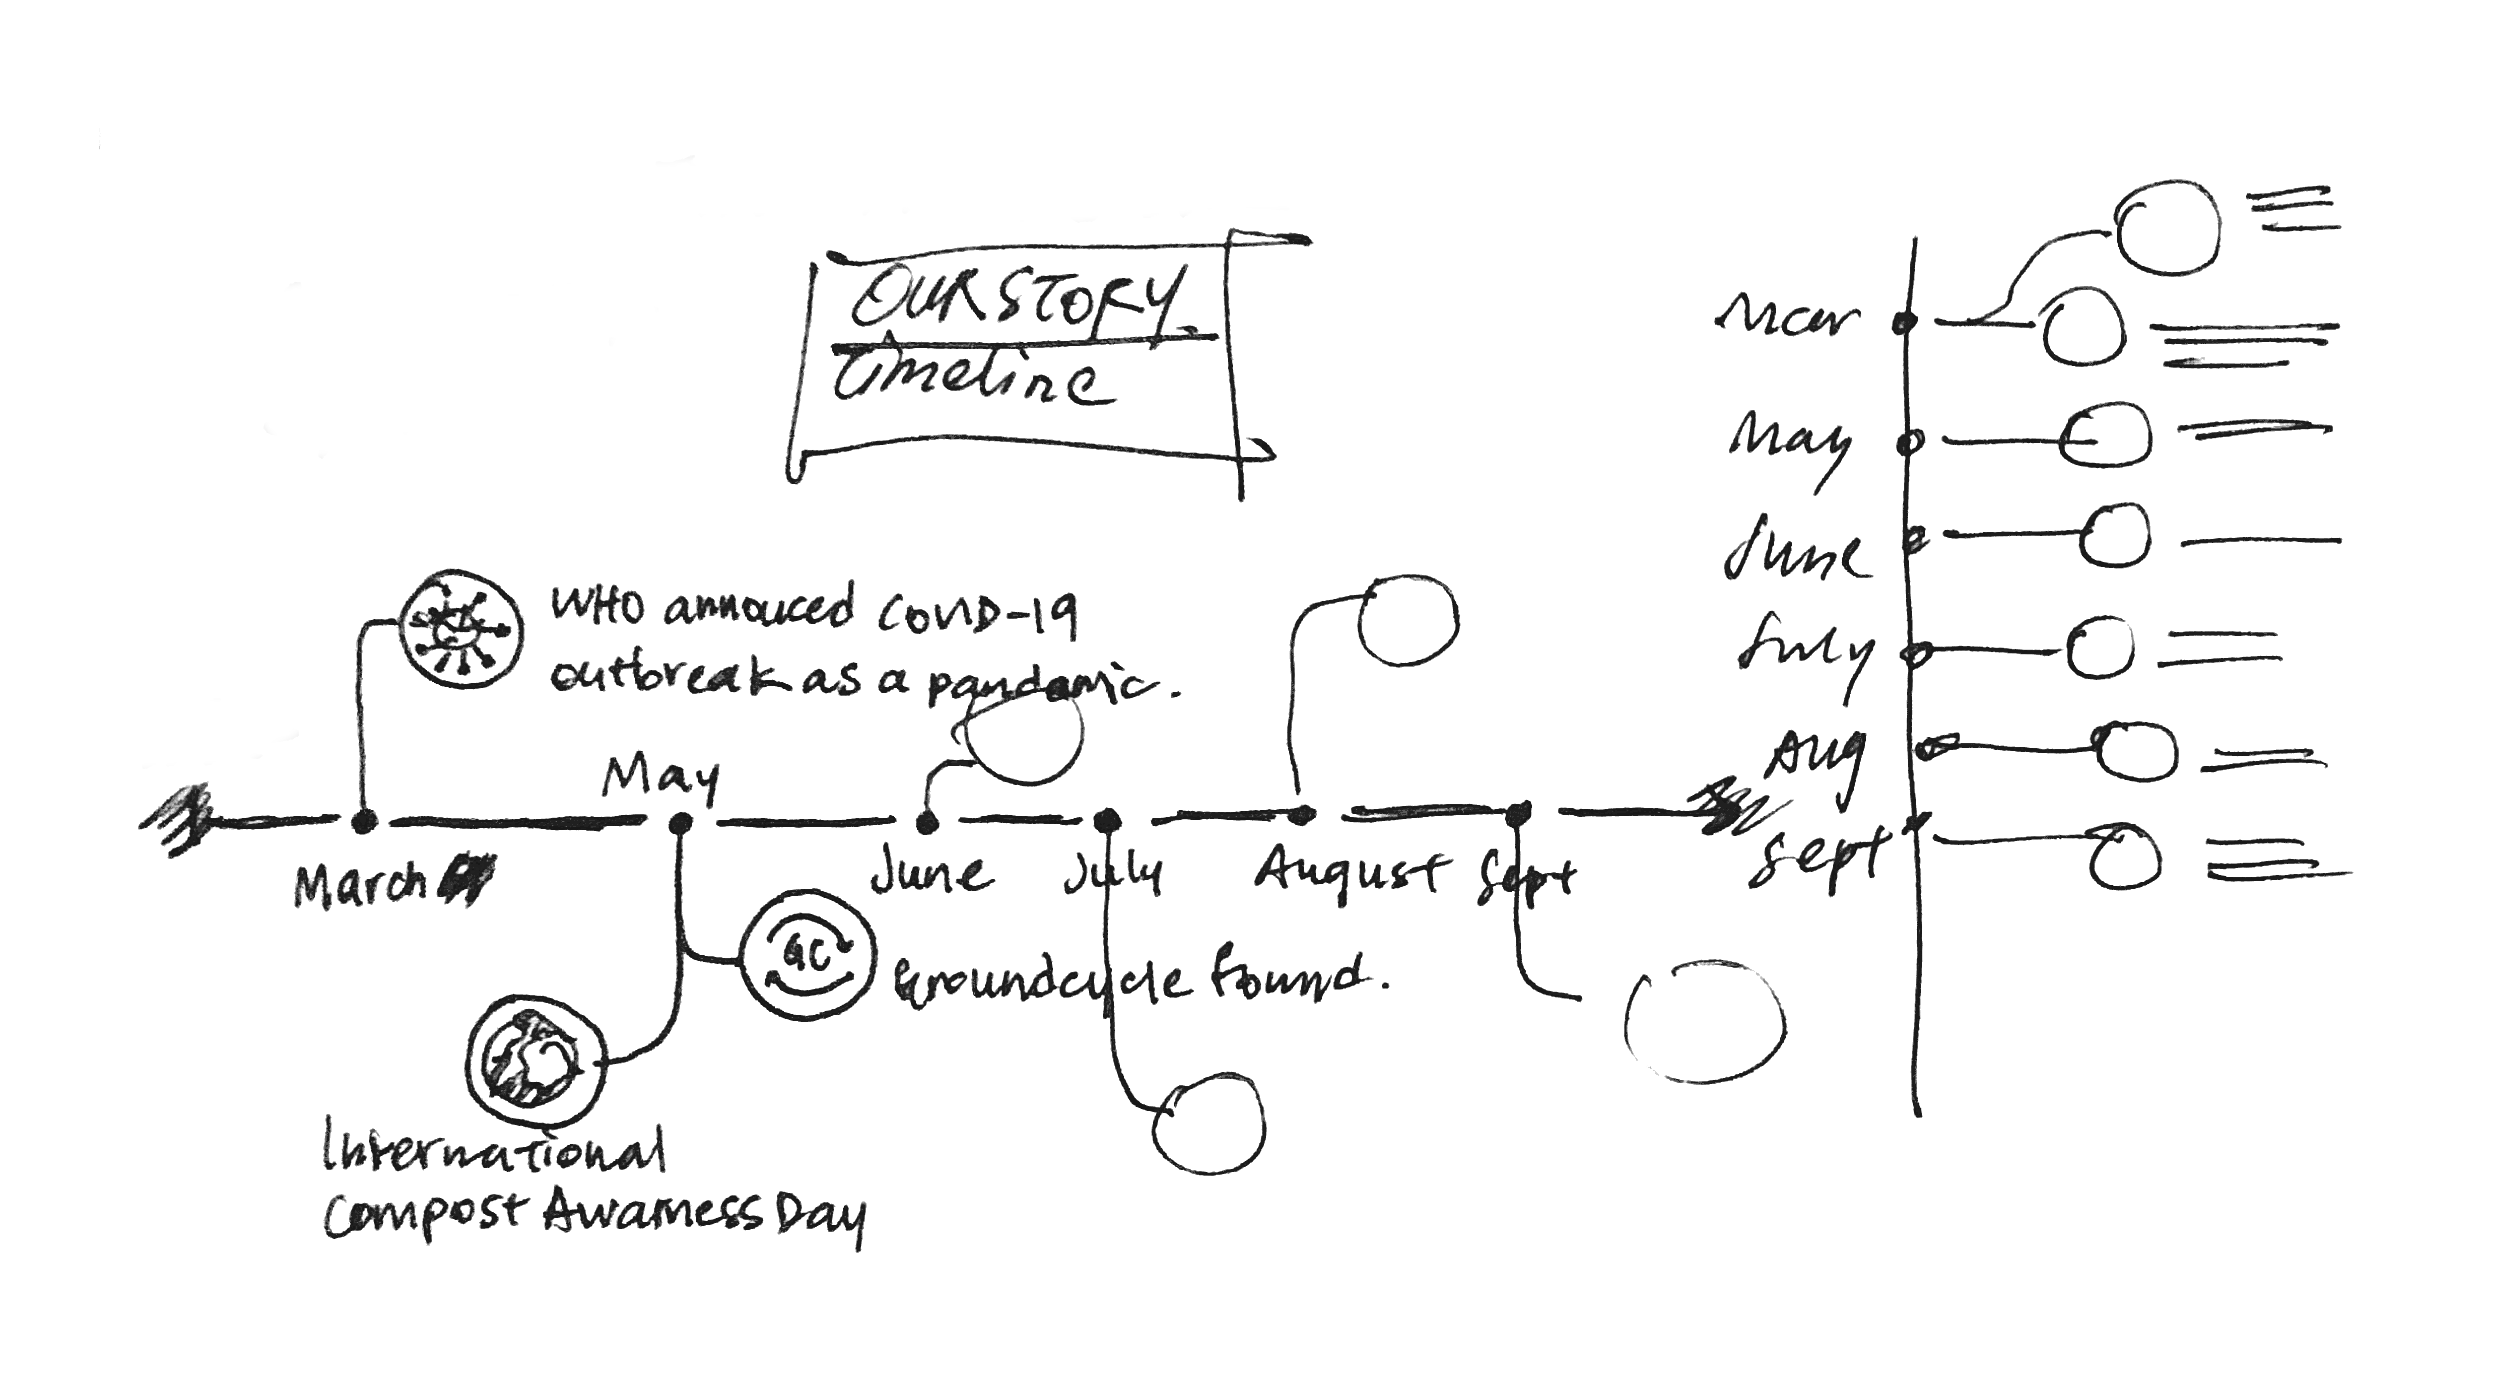 OUR STORY
Timeline
WHO annouced COVID-19
outbreak as a pandamic.
May
March
June
July
August
Sept
GC
Groundcycle found.
International
Compost Awarness Day
Mar
May
June
July
Aug
Sept